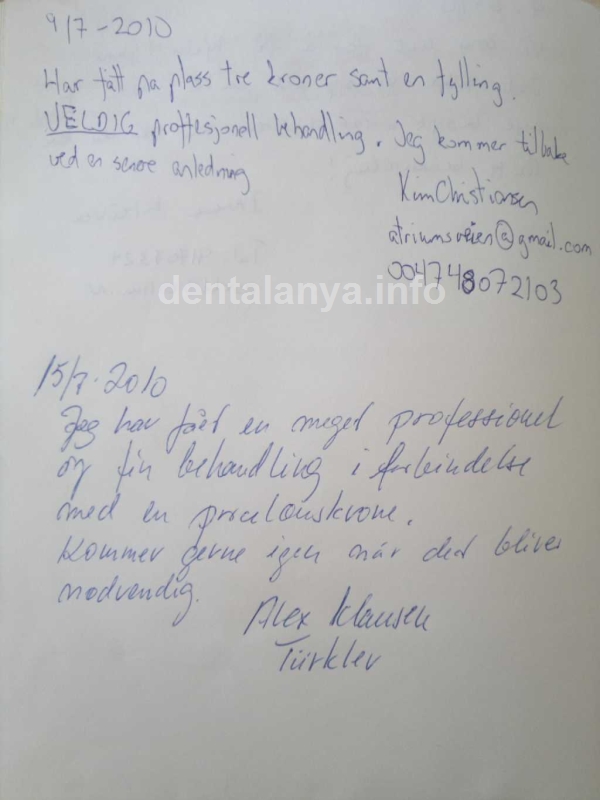 9/7-2010
Har fått på plass tre kroner samt en fylling.
VELDIG proffesjonell behandling. Jeg kommer tilbake
ved en senere anledning
Kim Christiansen
atriumsveien@gmail.com
004748072103
dentalanya.info
15/7-2010
Jeg har fået en meget professionel
og fin behandling i forbindelse
med en porcelanskrone.
Kommer gerne igen når det bliver
nødvendig.
Alex Klausen
Türkler